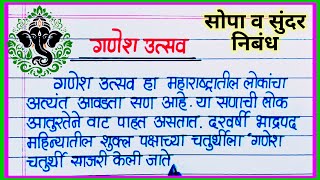 सोपा व सुंदर
निबंध
गणेश उत्सव
गणेश उत्सव हा महाराष्ट्रातील लोकांचा
अत्यंत आवडता सण आहे. या सणाची लोक
आतुरतेने वाट पाहत असतात. दरवर्षी भाद्रपद
महिन्यातील शुक्ल पक्षाच्या चतुर्थीला गणेश
चतुर्थी साजरी केली जाते.